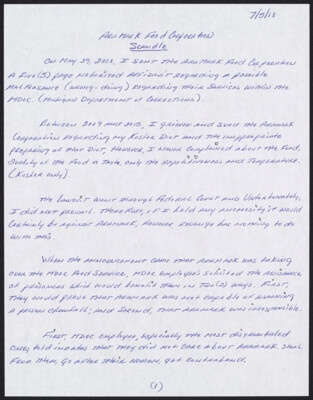 7/9/18
Aramark Food Corporation
Scandle
On May 29, 2018, I sent the Aramark Food Corporation
A Five (5) page Notarized Affidavit regarding a possible
Malfeasance (wrong-doing) regarding their services within the
MDOC. (Michigan Department of Corrections)
Between 2014 and 2015, I grieved and sued the Aramark
Corporation regarding my Kosher Diet and the inappropriate
preparing of that Diet, However, I never complained about the Food,
Quality of the Food or Taste, only the repetitiveness and Temperature.
(Kosher only)
The lawsuit went through Federal Court and Unfortunately,
I did not prevail. Therefore, if I held any animosity it would
Certainly be against Aramark, However revenge has nothing to do
with this.
When the announcement came that Aramark was taking
over the MDOC Food Service, MDOC employees solicited the assistance
of prisoners which would benefit them in Two (2) ways. First,
They would prove that Aramark was not capable of running
a prison chowhall; and Second, that Aramark was irresponsible.
First, MDOC employees, especially the most disgruntled
Ones, told inmates that they did not care about Aramark. Steal
From them, go after their women, get contraband.
(1)